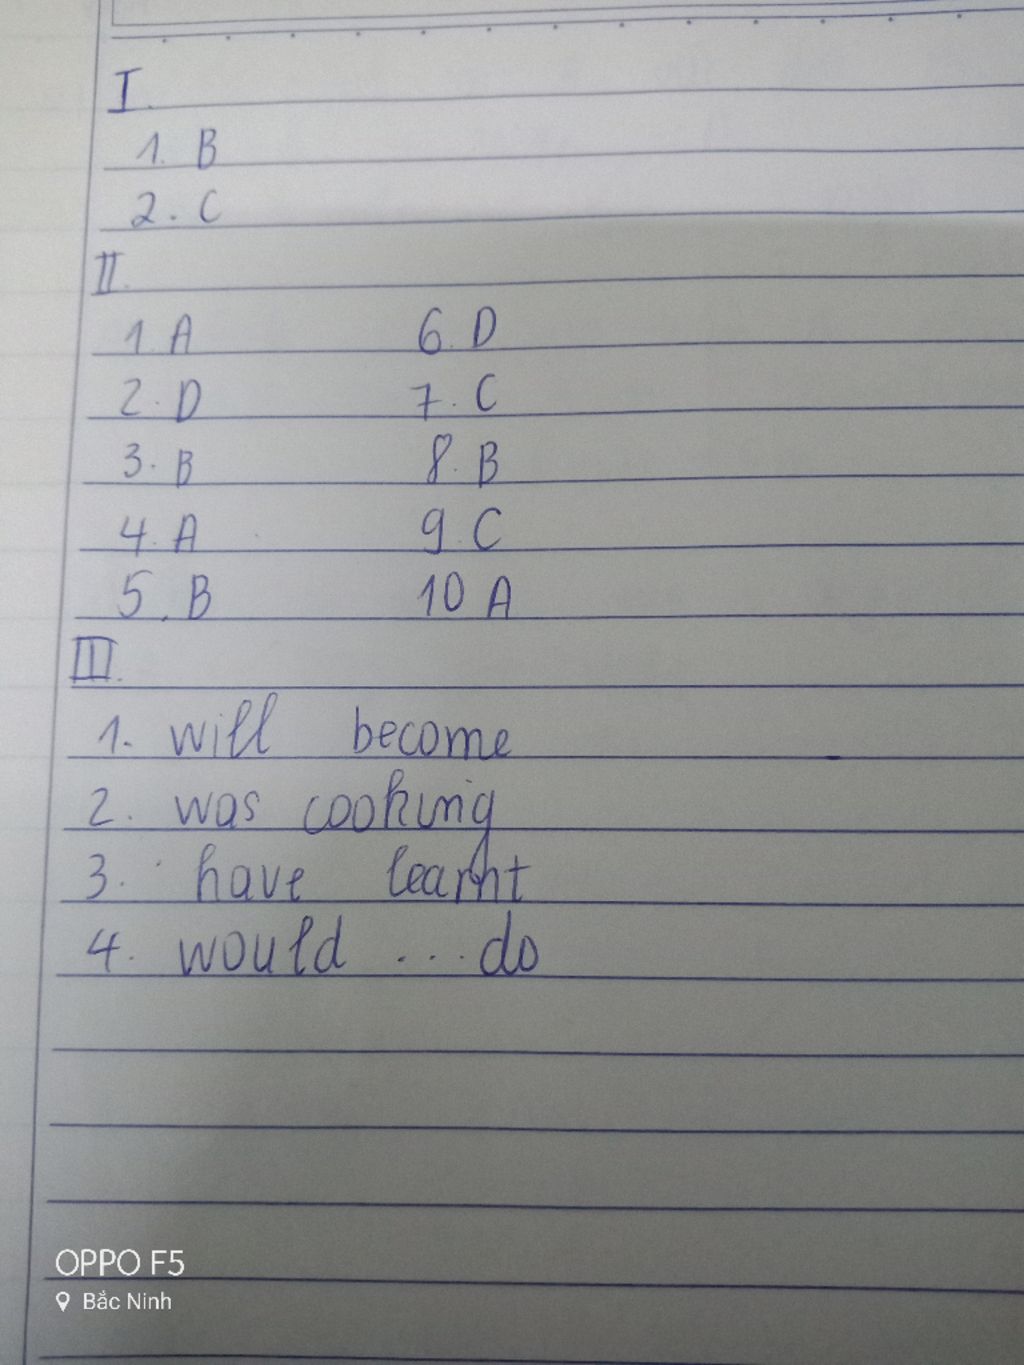 I.
1. B
2. C
II.
1. A 6. D
2. D 7. C
3. B 8. B
4. A 9. C
5. B 10 A
III.
1. will become
2. was cooking
3. have learnt
4. would ... do
OPPO F5
Bắc Ninh